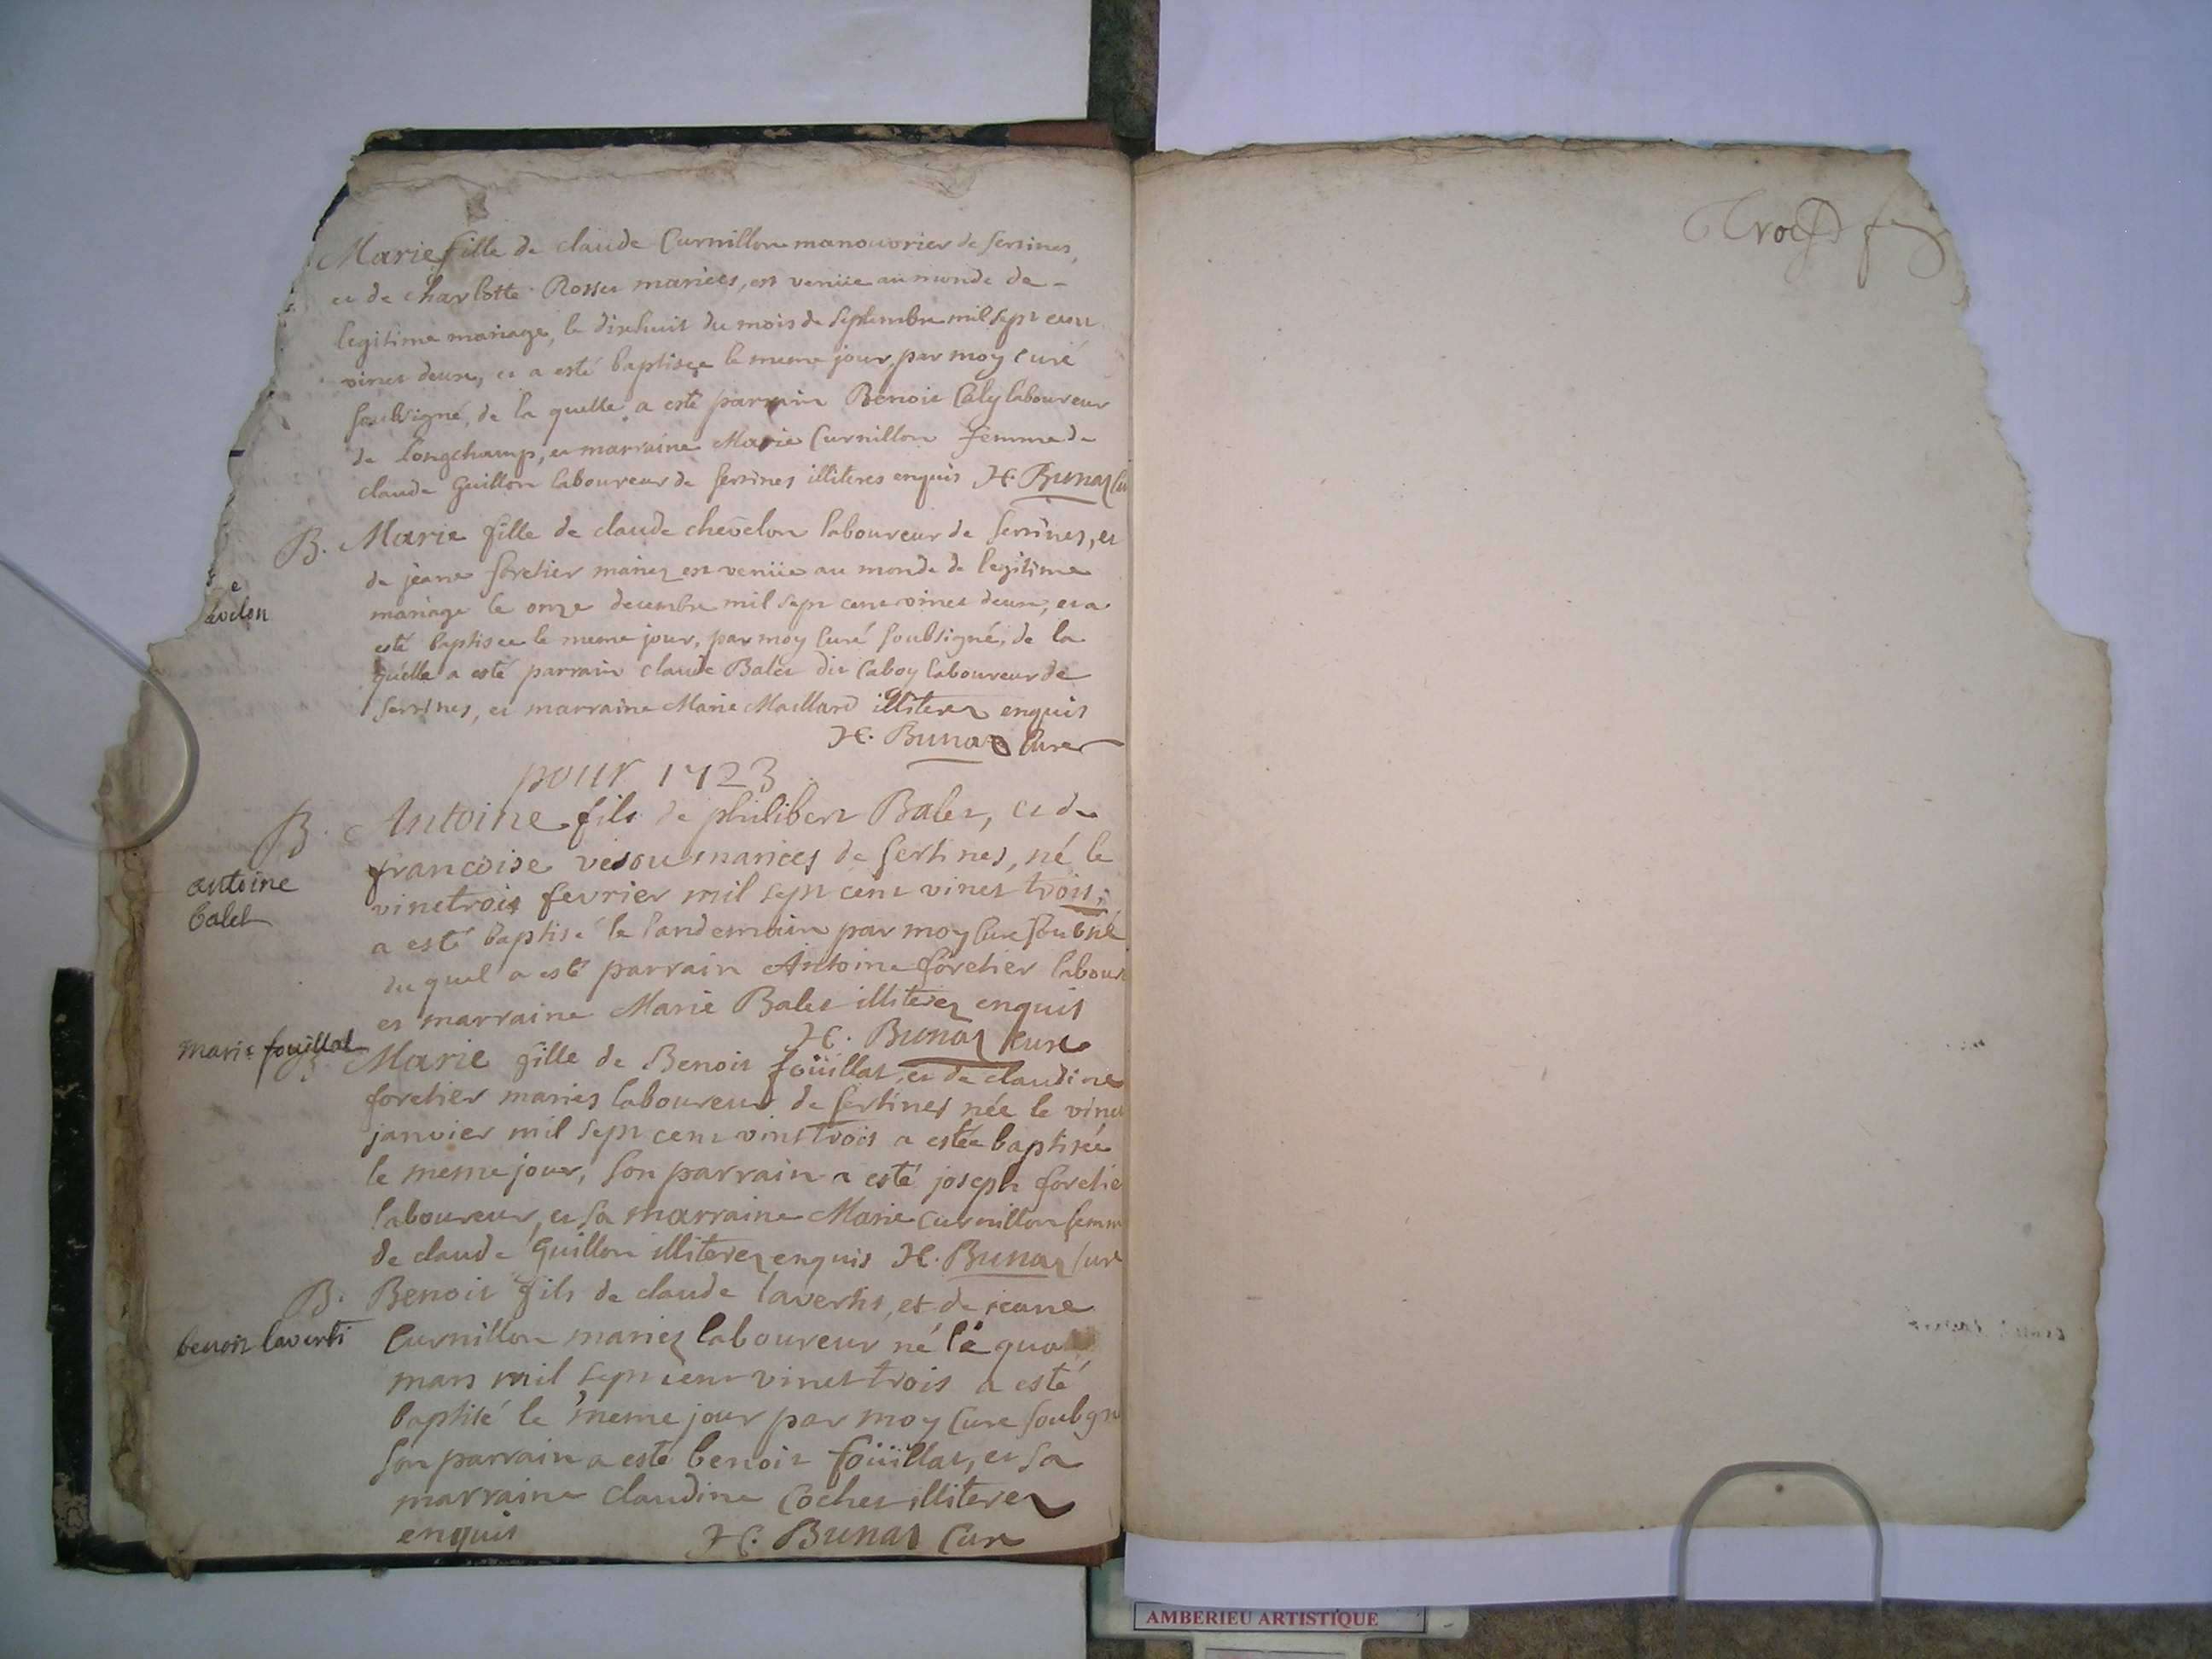 Marie fille de claude Curnillon manouvrier de sertines,
et de charlotte Rosset mariees, est venüe au monde de -
legitime mariage, le dixhuit du mois de septembre mil sept cent
vinct deux, et a esté baptisée le meme jour, par moy curé
soubsigné, de la quelle a esté parrain Benoit Caly laboureur
de Longchamp, et marraine Marie Curnillon femme de
claude Guillon laboureur de sertines illiteres enquis H. Bunaz Cu
B. Marie fille de claude chevelon laboureur de sertines, et
de jeane foretier mariez est venüe au monde de legitime
mariage le onze decembre mil sept cent vinct deux, et a
esté baptisee le meme jour, par moy Curé soubsigné, de la
evelon
quelle a esté parrain claude Balet dit Caboy laboureur de
sertines, et marraine Marie Maillard illiterez enquis
H. Bunaz Curé
pour 1723
B. Antoine fils de philibert Balet, et de
francoise vesou mariees de sertines, né le
antoine
balet
vinctrois fevrier mil sept cent vinct trois,
a esté baptisé le landemain par moy Cure soubné
du quel a esté parrain Antoine foretier labour
et marraine Marie Balet illiterez enquis
H. Bunaz Curé
marie fouillat
B. Marie fille de Benoit foüillat, et de claudine
foretier mariés laboureur de sertines née le vinct
janvier mil sept cent vinstrois a estée baptisée
le meme jour, son parrain a esté joseph foretie
laboureur, et sa marraine Marie Curnillon femm
de claude Guillon illiterez enquis H. Bunaz Cure
B. Benoit fils de claude laverti, et de jeane
benoit laverti
Curnillon mariez laboureur né le qua
mars mil sept cent vinct trois a esté
baptisé le meme jour par moy Cure soubgn
son parrain a esté benoit foüillat, et sa
marraine claudine Cochet illiterez
enquis H. Bunaz Cure
AMBERIEU ARTISTIQUE